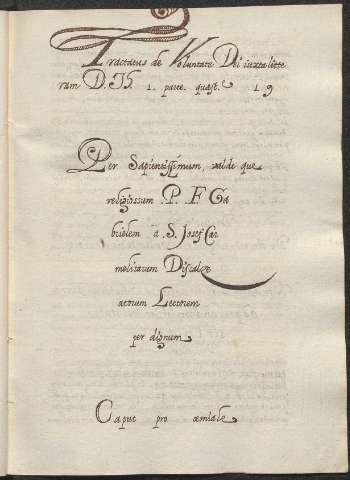 Tractatus de Voluntate Dei iuxta litte
ram D. Th. 1. parte. quæst. 19
Per Sapientissimum, valde que
religiossum P. F Ga
brielem â S. Josef Car
melitarum Discalce
atorum Lectorem
per dignum
Caput pro œmiale